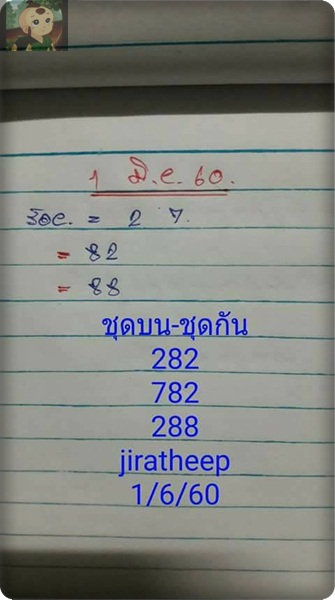 1 มิ.ย. 60.
= 2 7.
= 82
= 88
ชุดบน-ชุดกัน
282
782
288
jiratheep
1/6/60